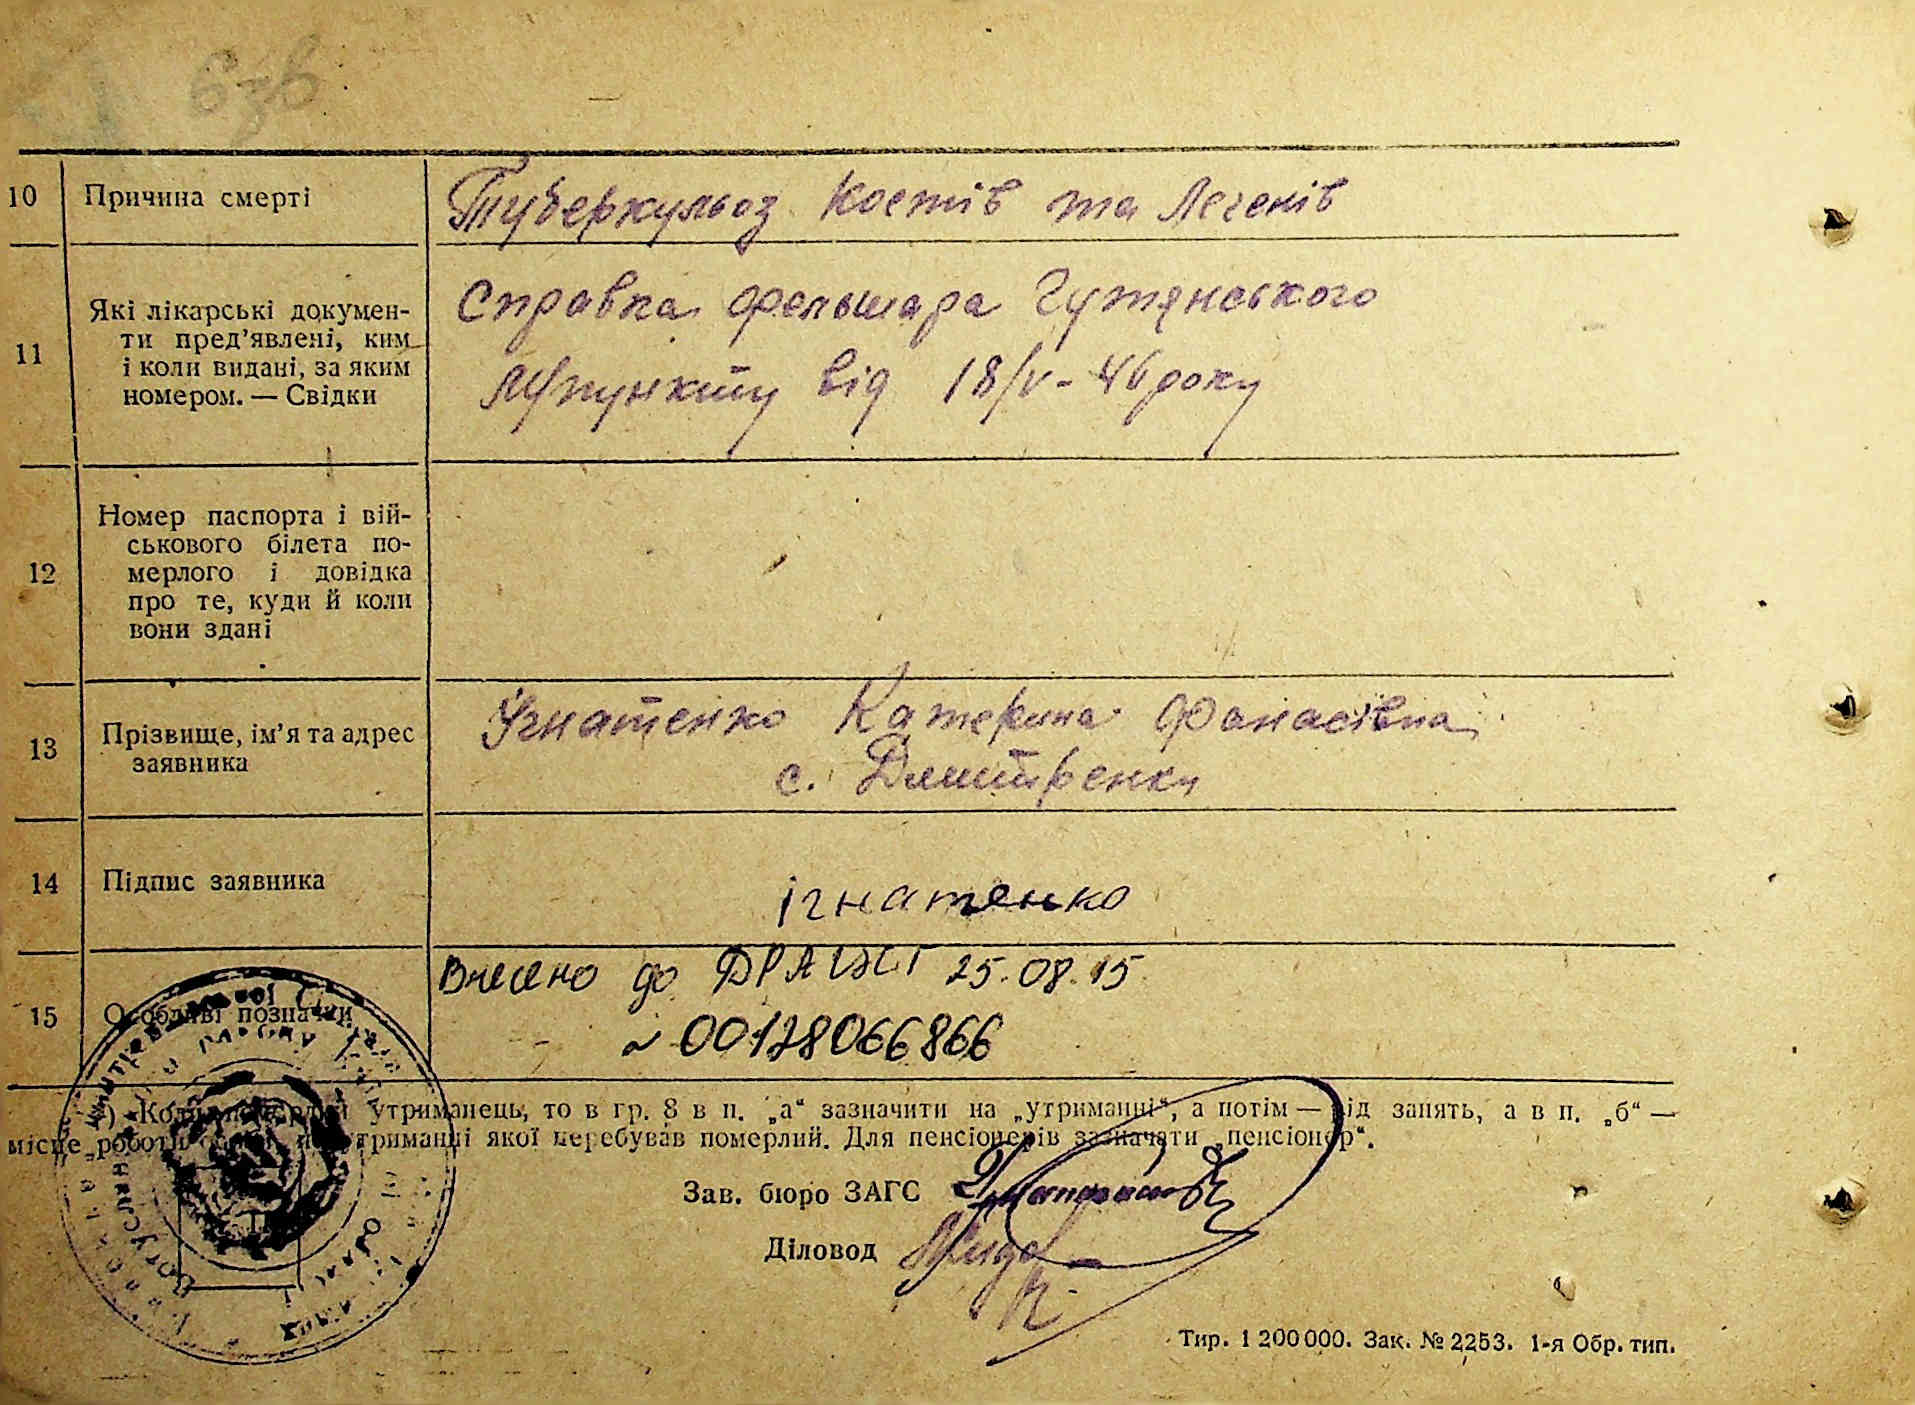 10 Причина смерті Туберкульоз Костів та Легенів
11 Які лікарські докумен-
ти пред’явлені, ким
і коли видані, за яким
номером. — Свідки
Справка фельшара Гутянського
від 18/V - 46 року
12 Номер паспорта і вій-
ськового білета по-
мерлого і довідка
про те, куди й коли
вони здані
13 Прізвище, ім’я та адрес
заявника
Ігнатенко Катерина Фанасівна
с. Дмитренки
14 Підпис заявника ігнатенко
15 Особливі позначки
Внесено до ДРАЦСГ 25.08.15
~ 00128066866
утриманець, то в гр. 8 в п. „а“ зазначити на „утриманні“, а потім — рід занять, а в п. „б“ —
місце роботи утриманні якої перебував померлий. Для пенсіонерів зазначати „пенсіонер“.
Зав. бюро ЗАГС
Діловод
Тир. 1 200 000. Зак. № 2253. 1-я Обр. тип.